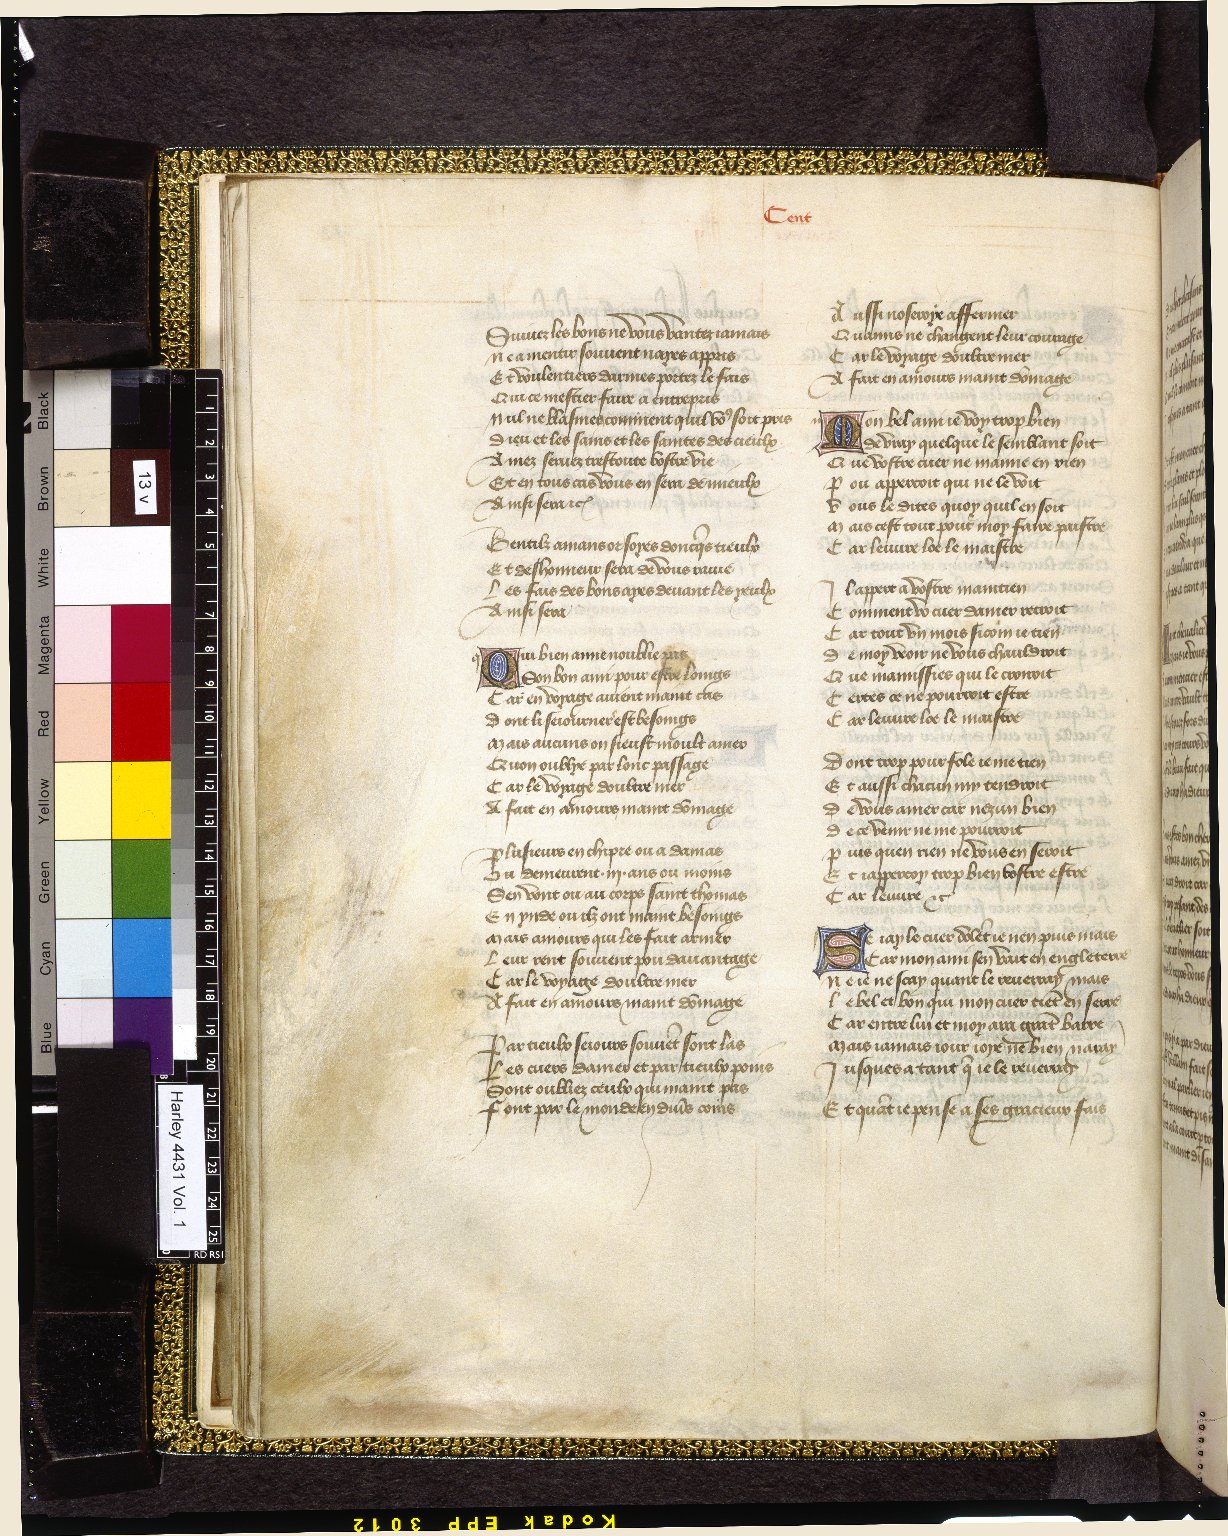 Cent
Suivez les bons ne vous vantez jamais
N e a mentir souvent nayes appris
E t voulentiers darmes portez le fais
Q ui ce mestier faire a entrepris
N ul ne blasmes comment quil voꝰ soit pris
D ieu et les sains et les saintes des cieulx
A mez servez trestoute vostre vie
E t en tous cas vous en sera de mieulx
A insi sera ⁊c̃
Gentilz amans or soyes doncq̃s tieulx
E t deshonneur sera de vous ravie
L es fais des bons ayes devant les yeulx
A insi sera
Qui bien aime noublie pas
Son bon ami pour estre loings
C ar en voyage autent maint cas
D ont li seiourner est besoings
M ais aucuns on sieust moult amer
Q uon oublye par lonc passage
C ar le voyage doultre mer
A fait en amours maint dõmage
P lusieurs en chipre ou a damas
U u demeurent .iij. ans ou moins
Sen vont ou au corps saint thomas
E n ynde ou ilz ont maint besoings
M ais amours qui les fait armer
L eur rent souvent pou davantage
C ar le voyage doultre mer
A fait en amours maint dõmage
P ar tieulx seiours souvẽt sont las
L es cuers damer et par tieulx poins
Sont oubliez ceulx qui maint pas
F ont par le monde en divs̃ coins
A ussi noseroye affermer
Q uamis ne changent leur courage
C ar le voyage doultre mer
A fait en amours maint dõmage
Mon bel ami ie voy trop bien
de vray quelque le semblant soit
Q ue vostre cuer ne maime en rien
P ou appercoit qui ne le voit
V ous le dites quoy quil en soit
M ais cest tout pour moy faire paistre
C ar leuvre loe le maistre
I l appert a vostre maintien
C omment vo cuer damer recroit
C ar tout un mois sicom ie tien
D e moy veoir ne vous chauldroit
Q ue mamissies qui le croiroit
C ertes ce ne pourroit estre
C ar leuvre loe le maistre
D ont trop pour fole ie me tien
E t aussi chacun my tendroit
D e vous amer car nezun bien
D e ce venir ne me pourroit
P uis quen rien ne vous en seroit
E t iappercoy trop bien vostre estre
C ar leuvre ⁊c̃
Se iay le cuer dolẽt ie nen puis mais
C ar mon ami sen vait en engleterre
N e ie ne scay quant le reverray mais
L e bel et bon qui mon cuer tiẽt en serre
C ar entre lui et moy ara grãt barre
M ais iamais iour ioye ne bien naray
I usques a tant q̃ ie le reverray
E t quãt ie pense a ses gracieux fais
Black
Brown
White
Magenta
Red
Yellow
Green
Cyan
Blue
13 v
1
2
3
4
5
7
8
9
10
11
12
13
14
15
16
17
18
19
20
21
22
23
24
25
Harley 4431 Vol. 1
Kodak EPP 3012